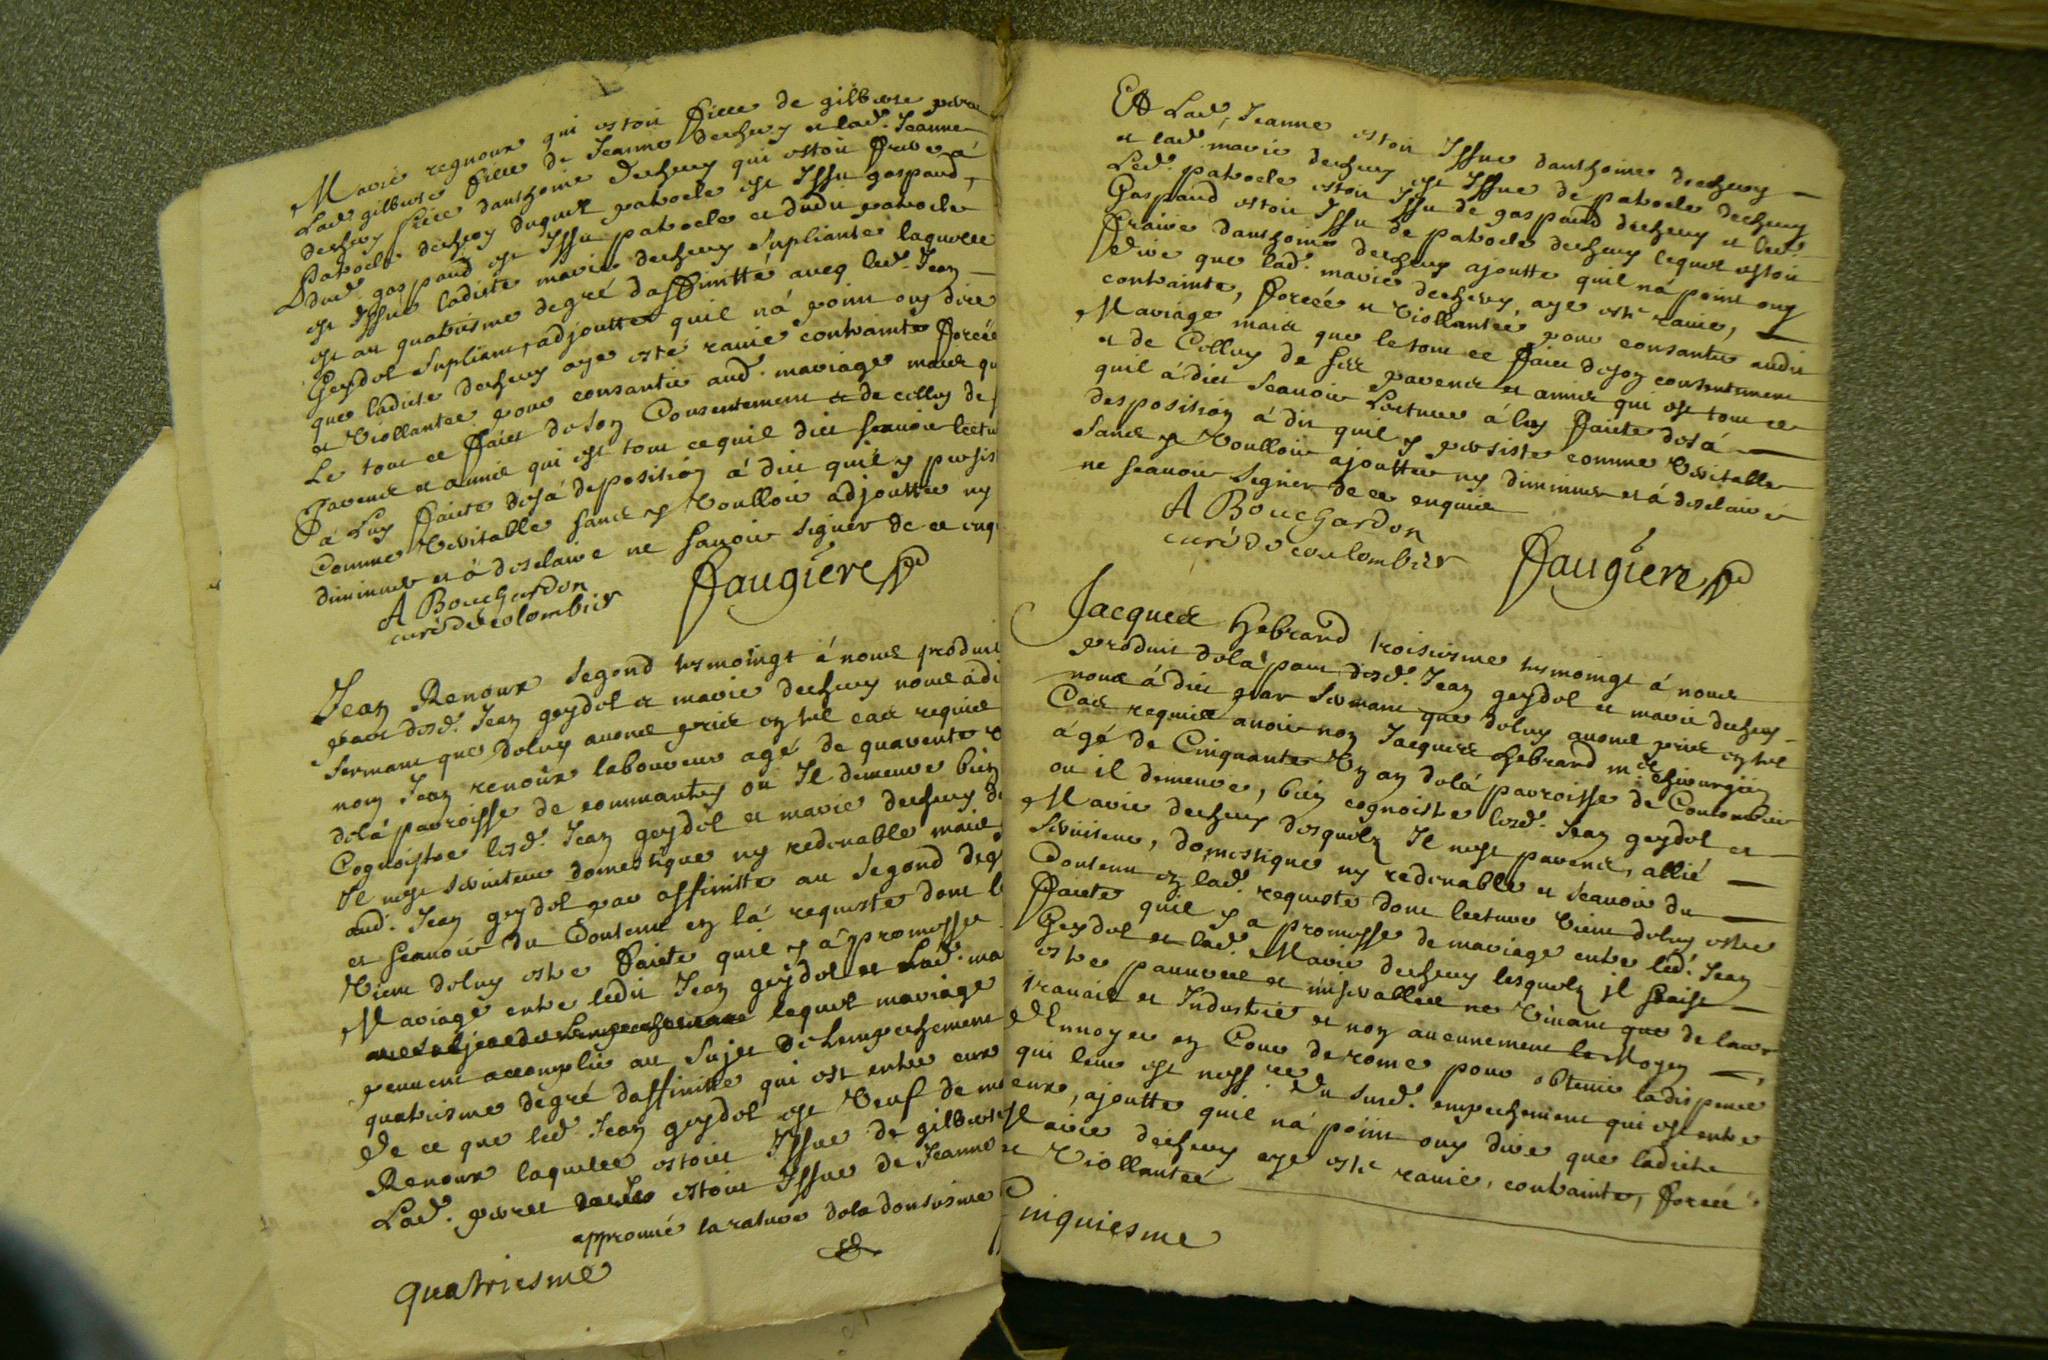 Marie regnoux qui estoit fille de gilberte perret
Lad. gilberte fille de Jeanne decheuy et lad. Jeanne
decheuy fille danthoine decheuy qui estoit frere a
patrocle decheuy duquel patrocle est Issu gaspard,
dud. gaspard est Issu patrocle et dudit patrocle
est yssüe ladicte marie decheuy supliante laquelle
est au quatriesme degré daffinitté aueq led. Jean
Geydol supliant, adjoutte quil nà point ouy dire
que ladicte decheuy aye esté rauie contrainte forcée
et Viollantée pour consantir aud. mariage mais qu
Le tout ce faict de son Consentement et de celluy de
parens et amis qui est tout ce quil dict scauoir lectu
à Luy faicte desà deposition à dit quil y persis
Comme Veritable sans y Voulloir adjoutter ny
diminuer et à desclaire ne sauoir signer de ce enq
A Bouchardon
curé de colombier
faugiere
Jean Renoux segond tesmoingt à nous produi
par desd. Jean geydol et marie decheuy nous à di
sermant que deluy auons pris en tel cas requis
nom Jean renoux laboureur agé de quarente
delà parroisse de commantry ou Il demeure bien
Cognoistre lesd. Jean geydol et marie decheuy de
Il nest seruiteur domestique ny redeuable mais
aud. Jean geydol par affinitte au segond deg
et scauoir du Contenu en là requeste dont le
Vient deluy estre faicte quil y à promesse
Mariage entre ledit Jean geydol et Lad. ma
lequel mariage
peuuent accomplir au sujet de Lempechement
quatriesme degré daffinitte qui est entre eux
de ce que led. Jean geydol est Veuf de m
Renoux laquelle estoit Issue de gilberte
Lad. perret estoit Issue de Jeanne
approuué la rature dela donsiesme
quatriesme
Et Lad. Jeanne estoit Issue danthoine decheuy
et lad. marie decheuy est Issue de patrocle decheuy
Led. patrocle estoit Issu de gaspard decheuy et led.
Gaspard estoit Issu de patrocle decheuy lequel estoit
fraire danthoine decheuy ajoutte quil nà point ouy
dire que lad. marie decheuy, aye esté rauie,
contrainte, forcée et Viollantée pour consantir audit
Mariage mais que le tout ce faict de son consentement
et de Celluy de ses parens et amis qui est tout ce
quil à dict scauoir Lecture à luy faicte desà
desposition à dit quil y persiste comme Veritable
sans y Voulloir ajoutter ny diminuer et à desclaire
ne scauoir signer de ce enquis
A Bouchardon
curé de coulombier
faugiere
Jacques hebrard troisiesme tesmoingt à nous
produit delà part desd. Jean geydol et marie decheuy
nous à dict par sermant que deluy auons pris en tel
Cas requis auoir non Jacques hebrard me chirurgien
àgé de Cinquante Vn an delà parroisse de Coulombier
ou il demeure, bien cognoistre lesd. Jean geydol et
Marie decheuy desquels Il nest parent, allié
seruiteur, domestique ny redeuable et scauoir du
Contenu en lad. requeste dont lecture Vient deluy estre
faicte quil y a promesse de mariage entre led. Jean
Geydol et lad. Marie decheuy lesquels il scaist
estre pauures et miserables ne Viuant que de leur
trauail et Industrie et non aucunnement le Moyen
dEnnoyer en Cour de rome pour obtenir la dispence
qui leur est nessre du susd. empechement qui est entre
eux, ajoutte quil nà point ouy dire que ladicte
Marie decheuy aye esté rauie, contrainte, forcée
et Viollantée
Cinquiesme